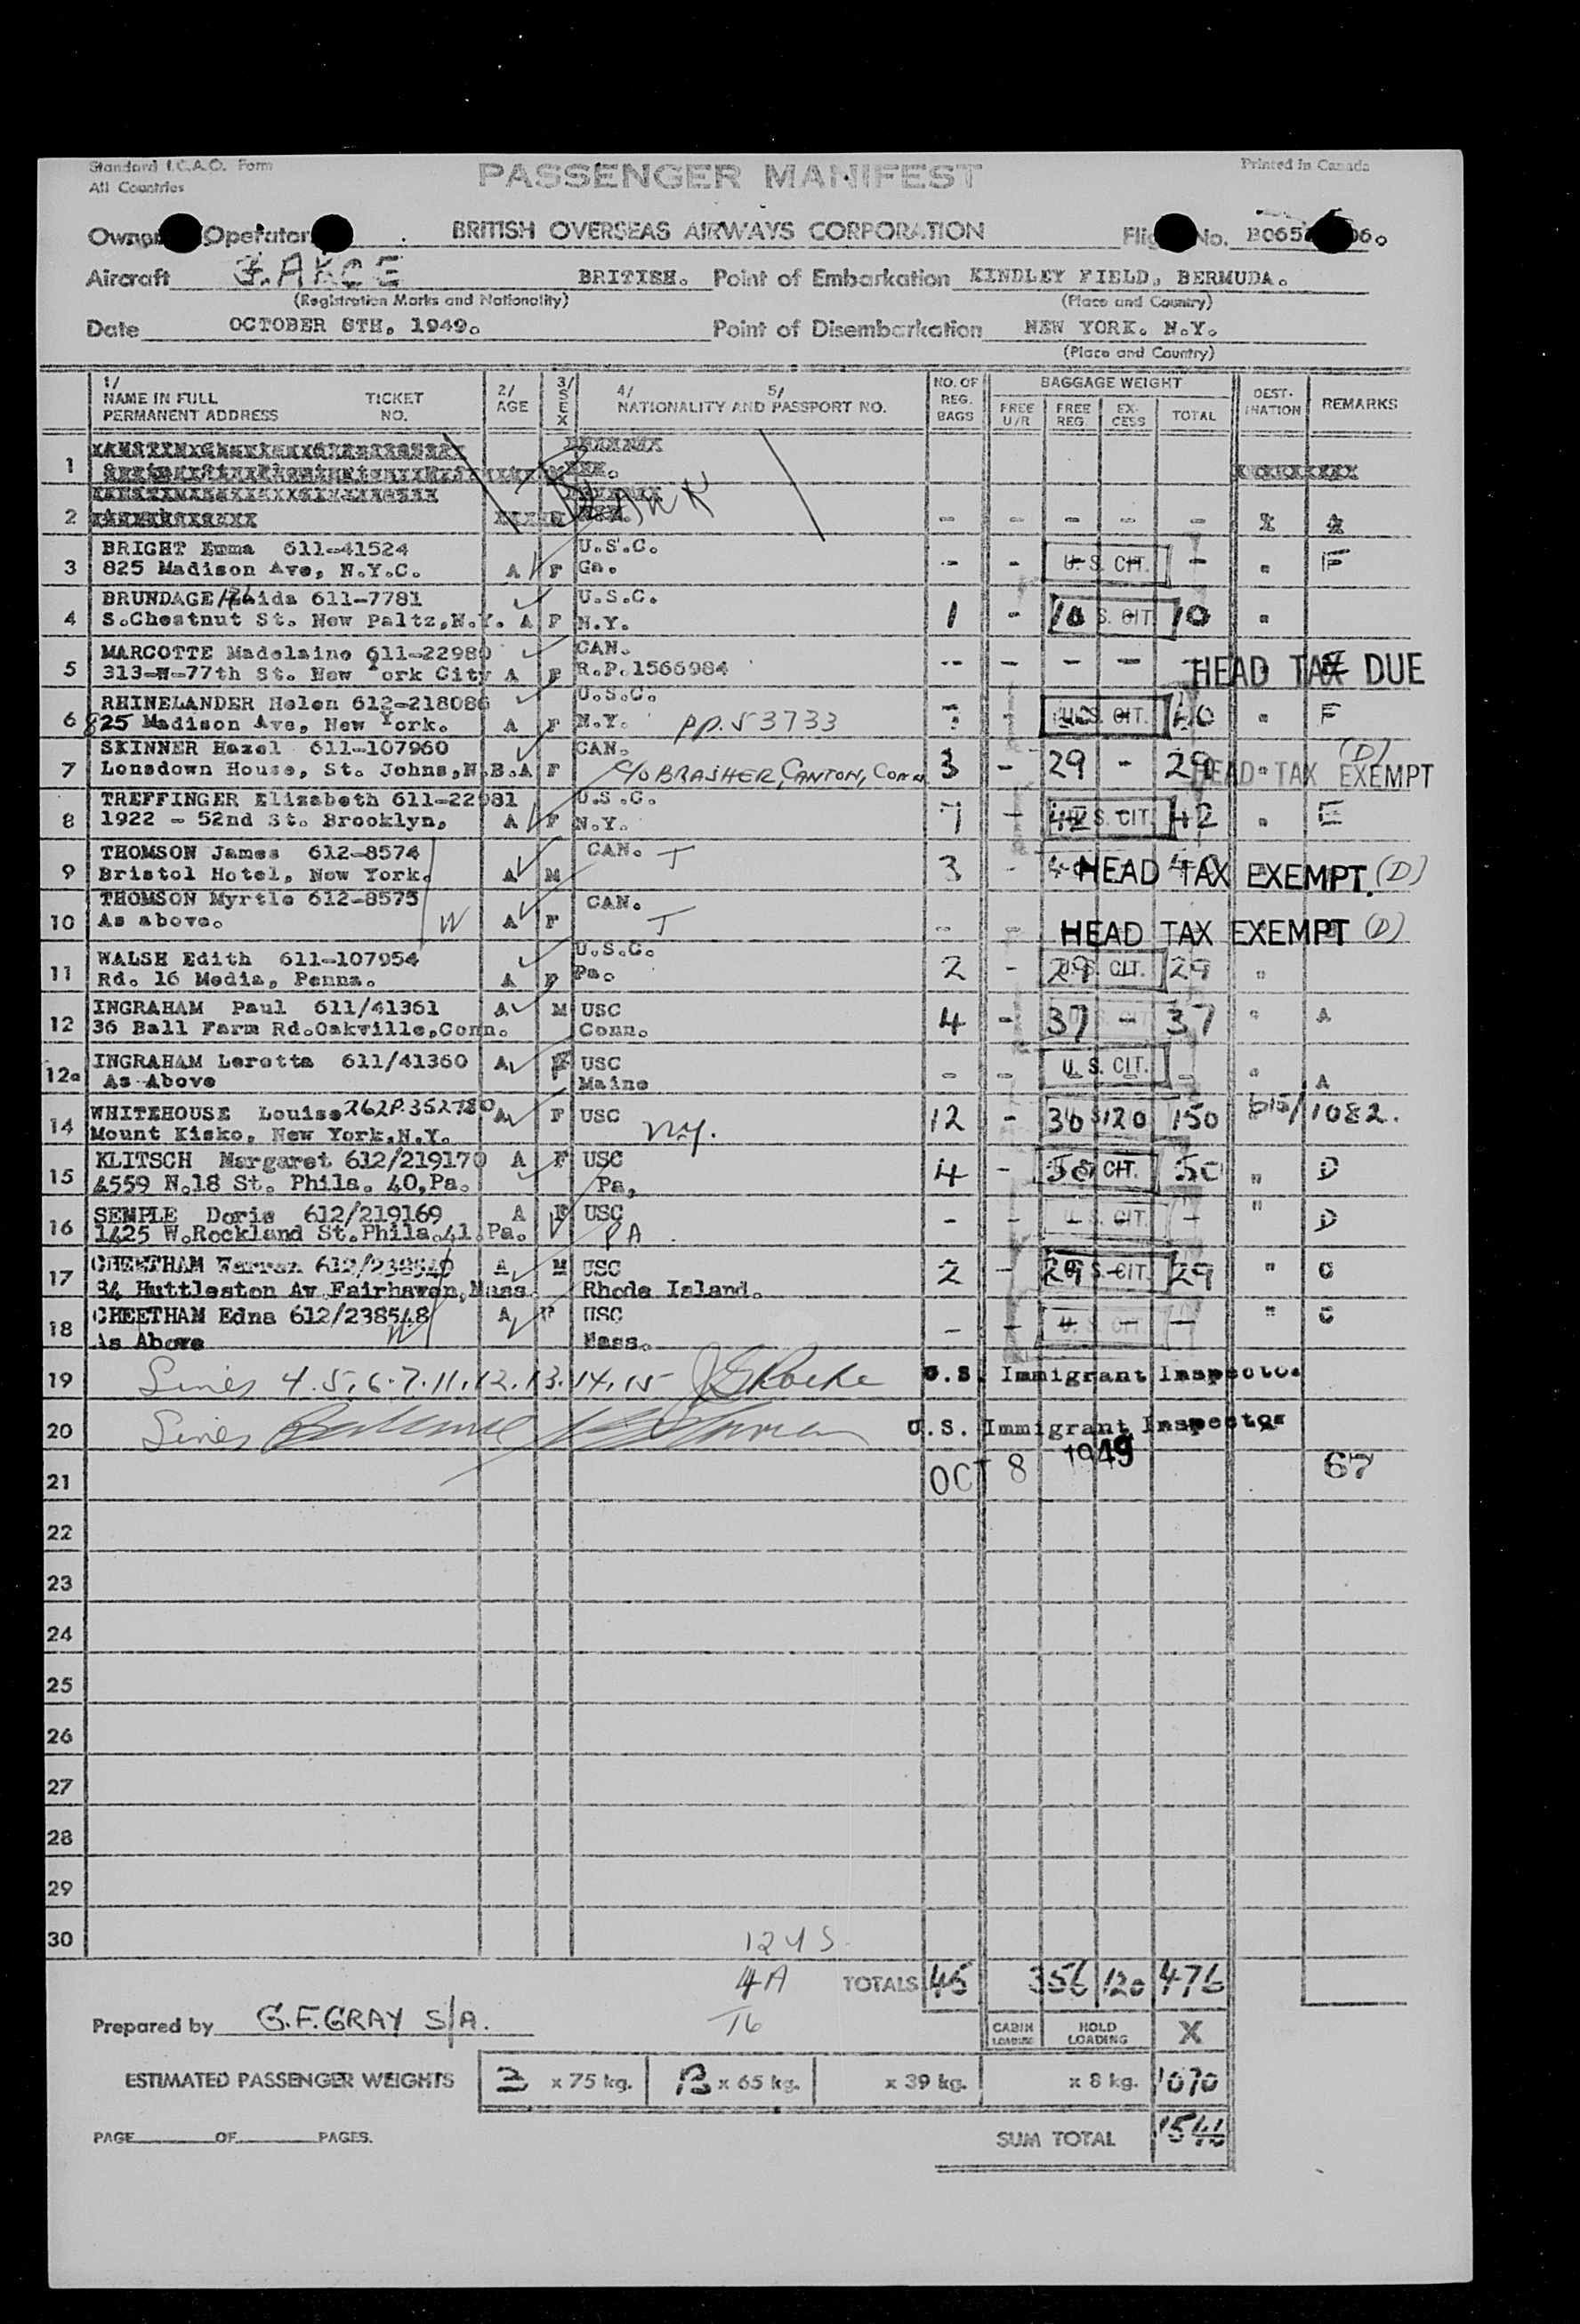 Standard I.C.A.O. Form
All Countries
PASSENGER MANIFEST
Printed in Canada
Operator
BRITISH OVERSEAS AIRWAYS CORPORATION
No.
Aircraft
BRITISH.
Point of Embarkation KINDLEY FIELD, BERMUDA.
(Registration Marks and Nationality)
(Place and Country)
Date OCTOBER 8TH. 1949.
Point of Disembarkation NEW YORK. N.Y.
(Place and Country)
1/ NAME IN FULL PERMANENT ADDRESS TICKET NO.
2/ AGE
3/ SEX
4/ 5/ NATIONALITY AND PASSPORT NO.
NO. OF REG. BAGS
BAGGAGE WEIGHT
FREE U/R FREE REG. EX-CESS TOTAL
DEST-INATION
REMARKS
1
BLANK
2
3 BRIGHT Emma 611-41524 U.S.C.
825 Madison Ave, N.Y.C. A F Ga. - - U.S. CIT. - " F
4 BRUNDAGE 611-7781 U.S.C.
S.Chestnut St. New Paltz,N.Y. A F N.Y. 1 - 10 S. CIT. 10 "
5 MARCOTTE Madelaine 611-22980 CAN.
313-W-77th St. New York City A F R.P.1566984 - - - - HEAD TAX DUE
6 RHINELANDER Helen 612-218086 U.S.C.
825 Madison Ave, New York. A F N.Y. PP. 53733 U.S. CIT. " F
7 SKINNER Hazel 611-107960 CAN. (D)
Lonsdown House, St. Johns,N.B. A F C/O BRASHER, CANTON, CONN 3 - 29 - 29 HEAD TAX EXEMPT
8 TREFFINGER Elizabeth 611-22981 U.S.C.
1922 - 52nd St. Brooklyn, A F N.Y. 7 - 42 S. CIT. 42 " E
9 THOMSON James 612-8574 CAN. T
Bristol Hotel, New York. A M 3 - HEAD TAX EXEMPT. (D)
10 THOMSON Myrtle 612-8575 CAN.
As above. W A F T - - HEAD TAX EXEMPT (D)
11 WALSH Edith 611-107954 U.S.C.
Rd. 16 Media, Penna. A F Pa. 2 - 29 U.S. CIT. 29 "
12 INGRAHAM Paul 611/41361 A M USC
36 Ball Farm Rd.Oakville,Conn. Conn. 4 - 37 - 37 " A
12a INGRAHAM Loretta 611/41360 A F USC U.S. CIT.
As Above Maine - - - - - " A
14 WHITEHOUSE Louise 262P.352780 A F USC
Mount Kisko, New York.N.Y. N.Y. 12 - 30 120 150 1082.
15 KLITSCH Margaret 612/219170 A F USC
4559 N.18 St. Phila. 40,Pa. Pa, 4 - 50 CIT. 50 " D
16 SEMPLE Doris 612/219169 A F USC
1425 W.Rockland St.Phila.41.Pa. PA - - U.S. CIT. - " D
17 CHEETHAM Warren 612/238549 A M USC
84 Huttleston Av Fairhaven,Mass. Rhode Island. 2 - 29 S. CIT. 29 " C
18 CHEETHAM Edna 612/238548 A F USC
As Above W Mass. - - U.S. CIT. - " C
19 Lines 4.5.6.7.11.12.13.14.15 U.S. Immigrant Inspector
20 Lines Balance U.S. Immigrant Inspector
21 OCT 8 1949 67
22
23
24
25
26
27
28
29
30
12 US
4A TOTALS 45 356 120 476
16
Prepared by G.F.GRAY S/A.
CABIN LOADING HOLD LOADING X
ESTIMATED PASSENGER WEIGHTS 3 x 75 kg. 13 x 65 kg. x 39 kg. x 8 kg. 1070
PAGE OF PAGES.
SUM TOTAL 1546